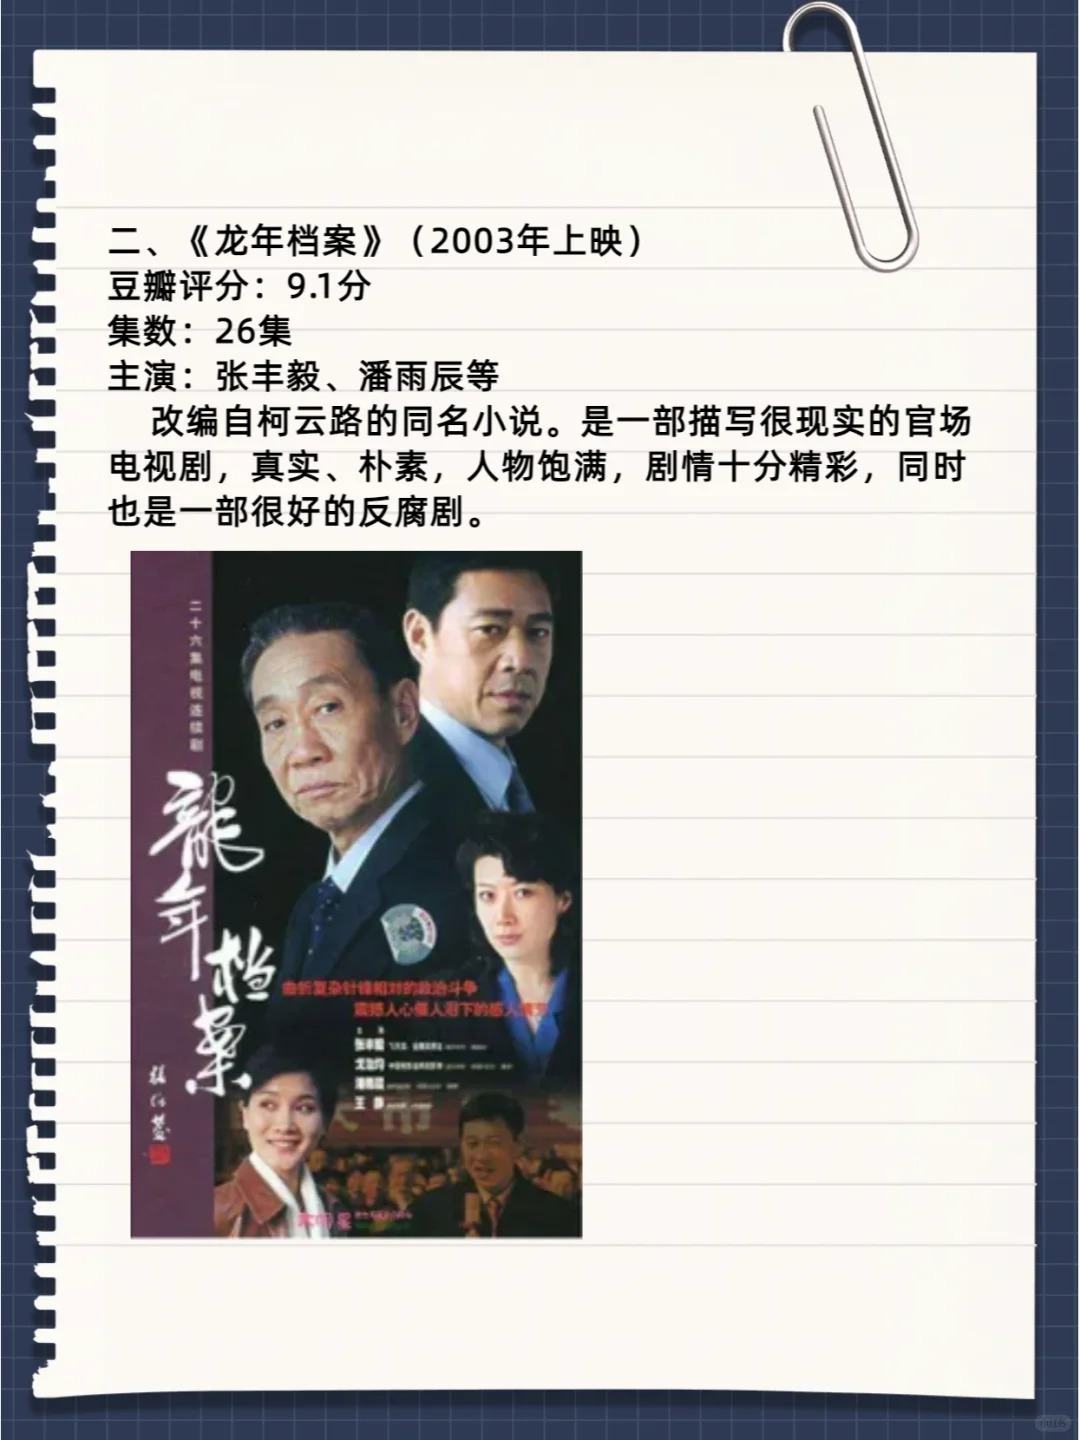 二、《龙年档案》（2003年上映）
豆瓣评分：9.1分
集数：26集
主演：张丰毅、潘雨辰等
改编自柯云路的同名小说。是一部描写很现实的官场
电视剧，真实、朴素，人物饱满，剧情十分精彩，同时
也是一部很好的反腐剧。
二十六集电视连续剧
龍年档案
曲折复杂针锋相对的政治斗争
震撼人心催人泪下的感人
主演
张丰毅
戈治均
潘雨辰
王静
小红书